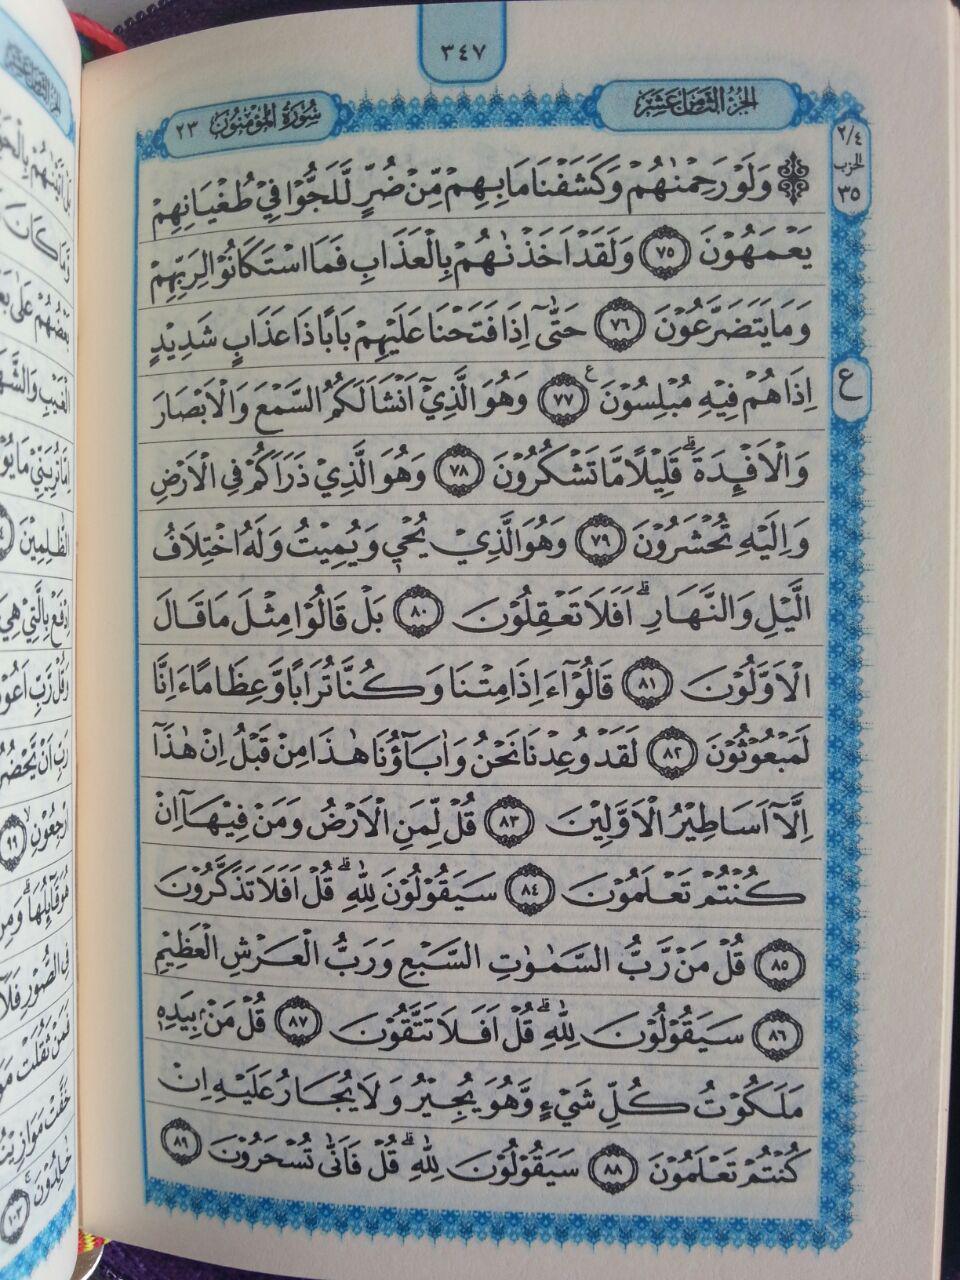 ٣٤٧
الجزء الثامن عشر
سورة المؤمنون ٢٣
٢/٤
الحزب
٣٥
وَلَوْ رَحِمْنٰهُمْ وَكَشَفْنَا مَا بِهِمْ مِّنْ ضُرٍّ لَّلَجُّوْا فِيْ طُغْيَانِهِمْ
يَعْمَهُوْنَ ٧٥ وَلَقَدْ اَخَذْنٰهُمْ بِالْعَذَابِ فَمَا اسْتَكَانُوْا لِرَبِّهِمْ
وَمَا يَتَضَرَّعُوْنَ ٧٦ حَتّٰٓى اِذَا فَتَحْنَا عَلَيْهِمْ بَابًا ذَا عَذَابٍ شَدِيْدٍ
اِذَا هُمْ فِيْهِ مُبْلِسُوْنَ ࣖ ٧٧ وَهُوَ الَّذِيْٓ اَنْشَاَ لَكُمُ السَّمْعَ وَالْاَبْصَارَ
ع
وَالْاَفْـِٕدَةَۗ قَلِيْلًا مَّا تَشْكُرُوْنَ ٧٨ وَهُوَ الَّذِيْ ذَرَاَكُمْ فِى الْاَرْضِ
وَاِلَيْهِ تُحْشَرُوْنَ ٧٩ وَهُوَ الَّذِيْ يُحْيٖ وَيُمِيْتُ وَلَهُ اخْتِلَافُ
الَّيْلِ وَالنَّهَارِۗ اَفَلَا تَعْقِلُوْنَ ٨٠ بَلْ قَالُوْا مِثْلَ مَا قَالَ
الْاَوَّلُوْنَ ٨١ قَالُوْٓا ءَاِذَا مِتْنَا وَكُنَّا تُرَابًا وَّعِظَامًا ءَاِنَّا
لَمَبْعُوْثُوْنَ ٨٢ لَقَدْ وُعِدْنَا نَحْنُ وَاٰبَاۤؤُنَا هٰذَا مِنْ قَبْلُ اِنْ هٰذَآ
اِلَّآ اَسَاطِيْرُ الْاَوَّلِيْنَ ٨٣ قُلْ لِّمَنِ الْاَرْضُ وَمَنْ فِيْهَآ اِنْ
كُنْتُمْ تَعْلَمُوْنَ ٨٤ سَيَقُوْلُوْنَ لِلّٰهِۗ قُلْ اَفَلَا تَذَكَّرُوْنَ
٨٥ قُلْ مَنْ رَّبُّ السَّمٰوٰتِ السَّبْعِ وَرَبُّ الْعَرْشِ الْعَظِيْمِ
٨٦ سَيَقُوْلُوْنَ لِلّٰهِۗ قُلْ اَفَلَا تَتَّقُوْنَ ٨٧ قُلْ مَنْۢ بِيَدِهٖ
مَلَكُوْتُ كُلِّ شَيْءٍ وَّهُوَ يُجِيْرُ وَلَا يُجَارُ عَلَيْهِ اِنْ
كُنْتُمْ تَعْلَمُوْنَ ٨٨ سَيَقُوْلُوْنَ لِلّٰهِۗ قُلْ فَاَنّٰى تُسْحَرُوْنَ ٨٩